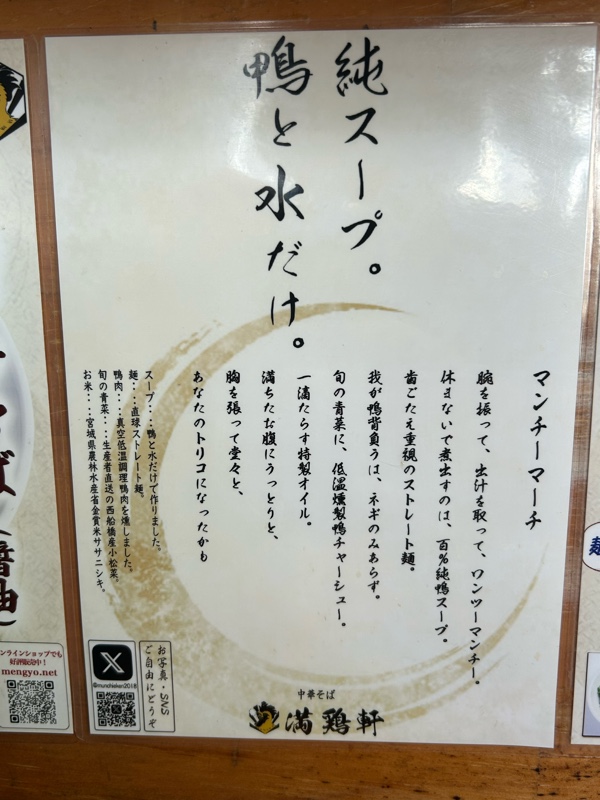 純スープ。
鴨と水だけ。
マンチーマーチ
腕を振って、出汁を取って、ワンツーマンチー。
休まないで煮出すのは、百%純鴨スープ。
歯ごたえ重視のストレート麺。
我が鴨背負うは、ネギのみあらず。
旬の青菜に、低温燻製鴨チャーシュー。
一滴たらす特製オイル。
満ちたお腹にうっとりと、
胸を張って堂々と、
あなたのトリコになったかも
スープ：鴨と水だけで作りました。
麺：直球ストレート麺。
鴨肉：真空低温調理鴨肉を燻しました。
旬の青菜：生産者直送の西船橋産小松菜。
お米：宮城県農林水産省金賞米ササニシキ。
お写真・SNS
ご自由にどうぞ
X
@munchieken2018
中華そば
満鶏軒
そば（醤油）
ンラインショップでも
好評販売中！
mengyo.net
麺